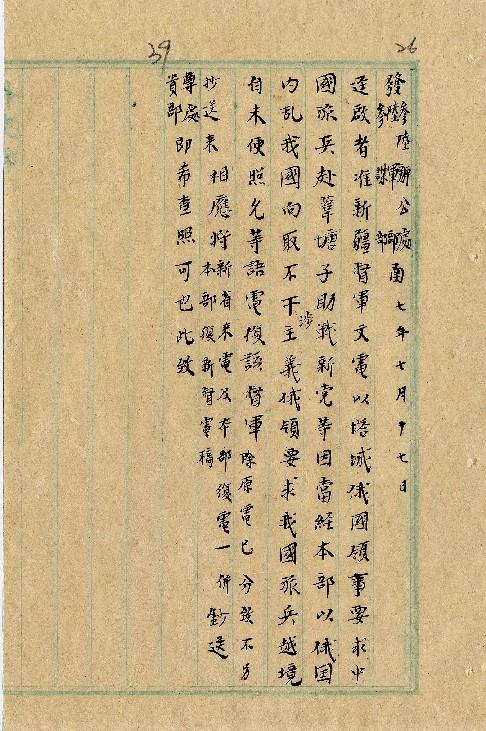 26
39
發參陸辦公處
陸軍部
參謀部
函 七年七月十七日
逕啟者准新疆督軍文電以塔城俄國領事要求中
國派兵赴葦塘子助戰新党等因當経本部以俄国
内乱我國向取不干涉主義俄領要求我國派兵越境
自未便照允等語電復該督軍除原電已分致不另
抄送 相應将新省来電及本部復電一併鈔送
本部復新督電稿
尊處
貴部
即希查照可也此致